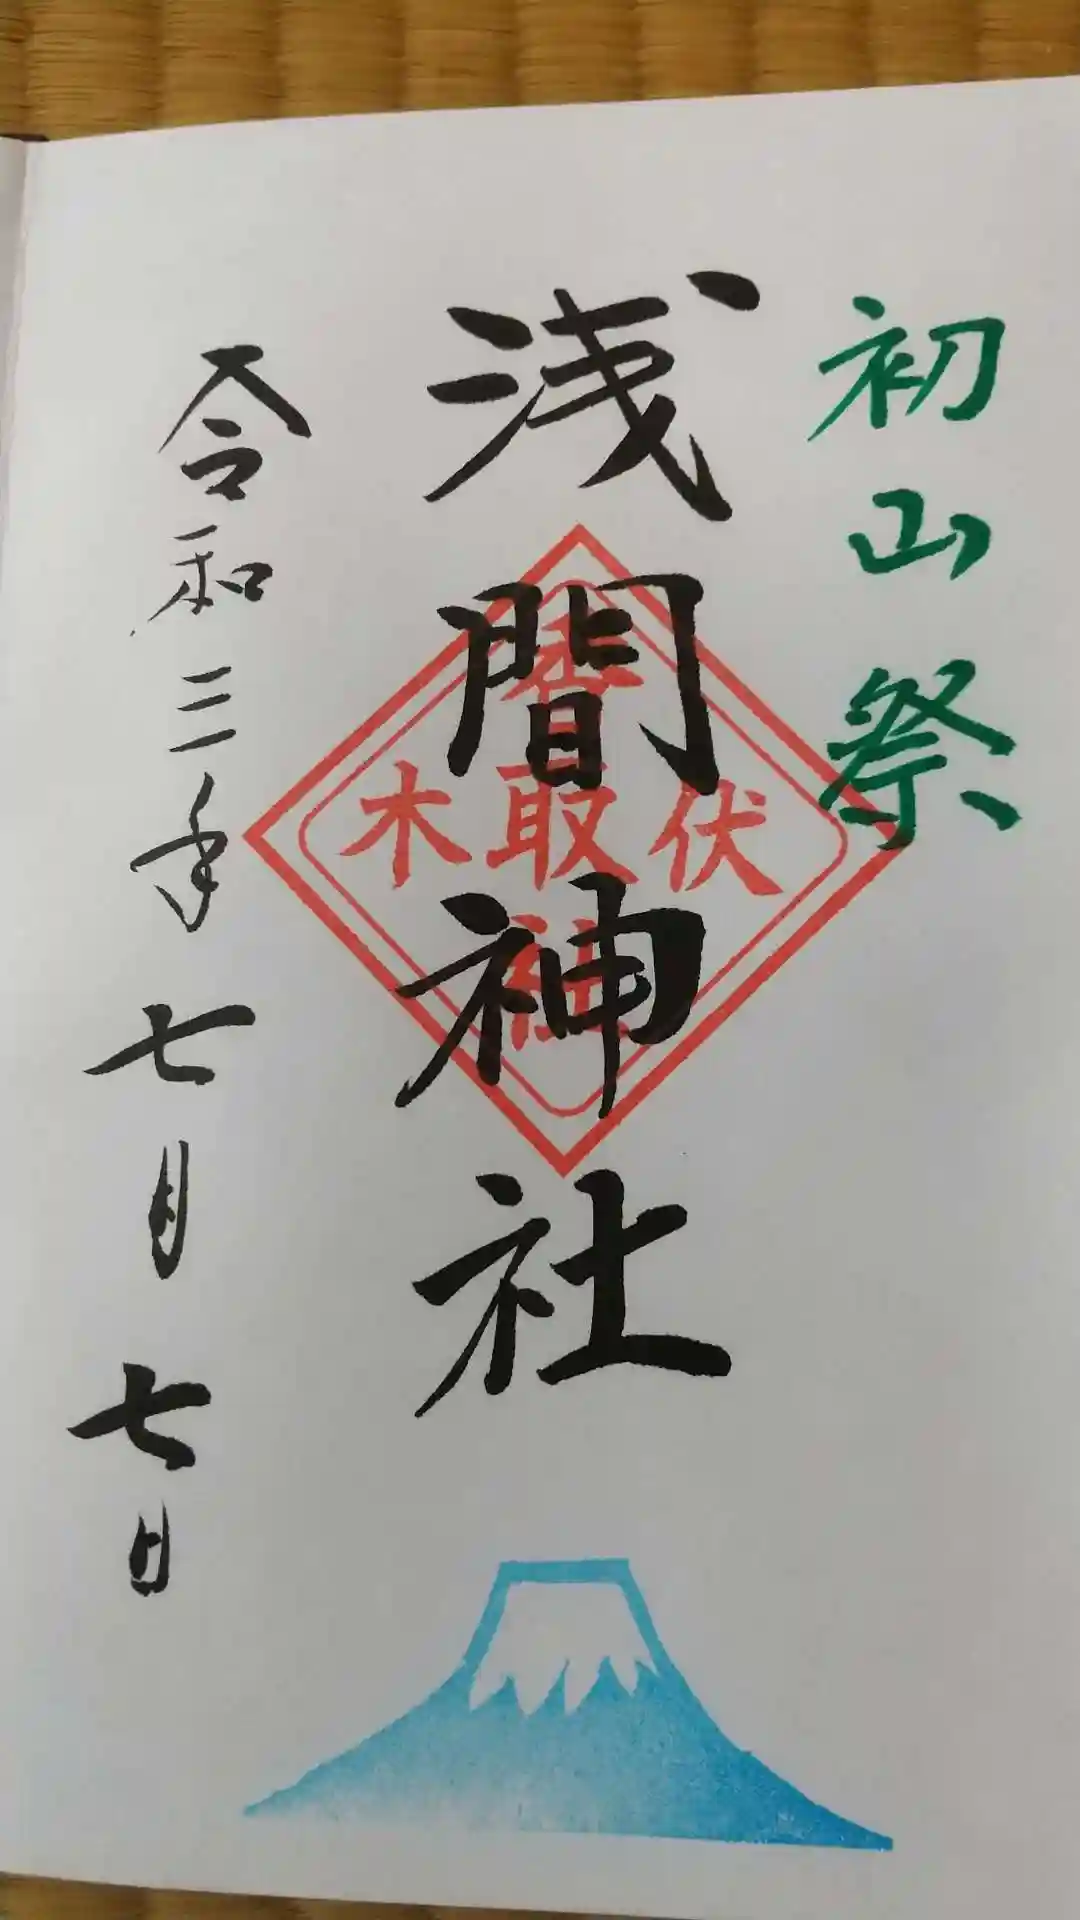 初山祭
浅間神社
伏
取
木
令和三年七月七日